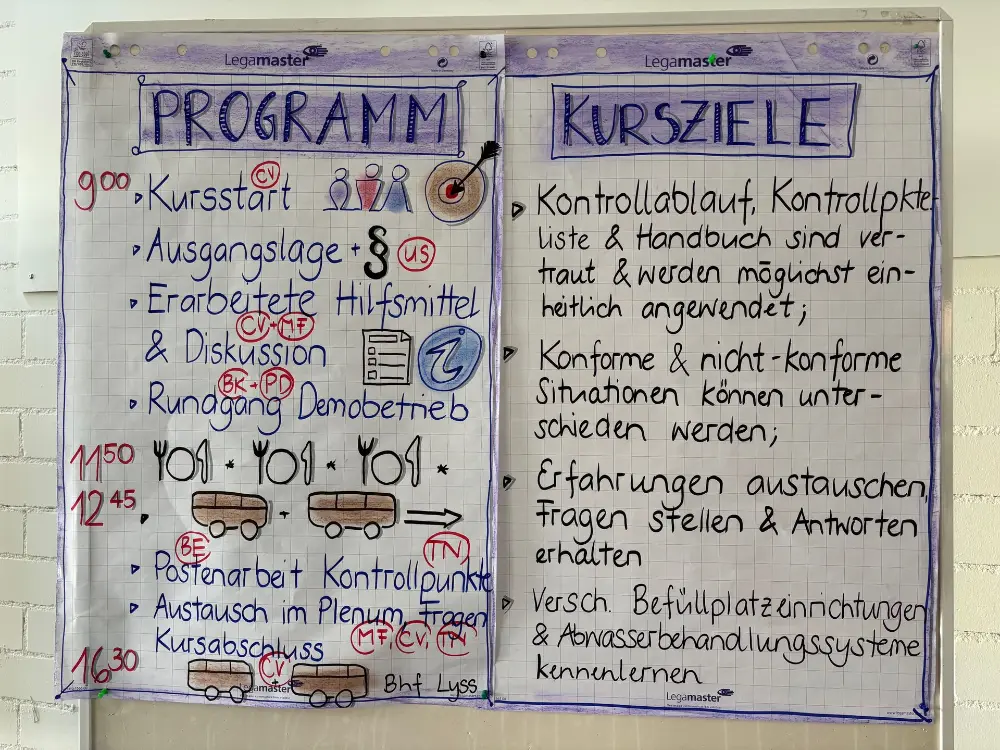 Legamaster
PROGRAMM
9⁰⁰ Kursstart CV
Ausgangslage + § US
Erarbeitete Hilfsmittel
CV + MF
& Diskussion
BK + PD
Rundgang Demobetrieb
11⁵⁰
12⁴⁵ +
BE TN
Postenarbeit Kontrollpunkte
Austausch im Plenum, Fragen
Kursabschluss MF, CV, TN
16³⁰ CV
Bhf Lyss
Legamaster
Legamaster
KURSZIELE
Kontrollablauf, Kontrollpkte-
liste & Handbuch sind ver-
traut & werden möglichst ein-
heitlich angewendet;
Konforme & nicht-konforme
Situationen können unter-
schieden werden;
Erfahrungen austauschen,
Fragen stellen & Antworten
erhalten
Versch. Befüllplatzeinrichtungen
& Abwasserbehandlungssysteme
kennenlernen
Legamaster